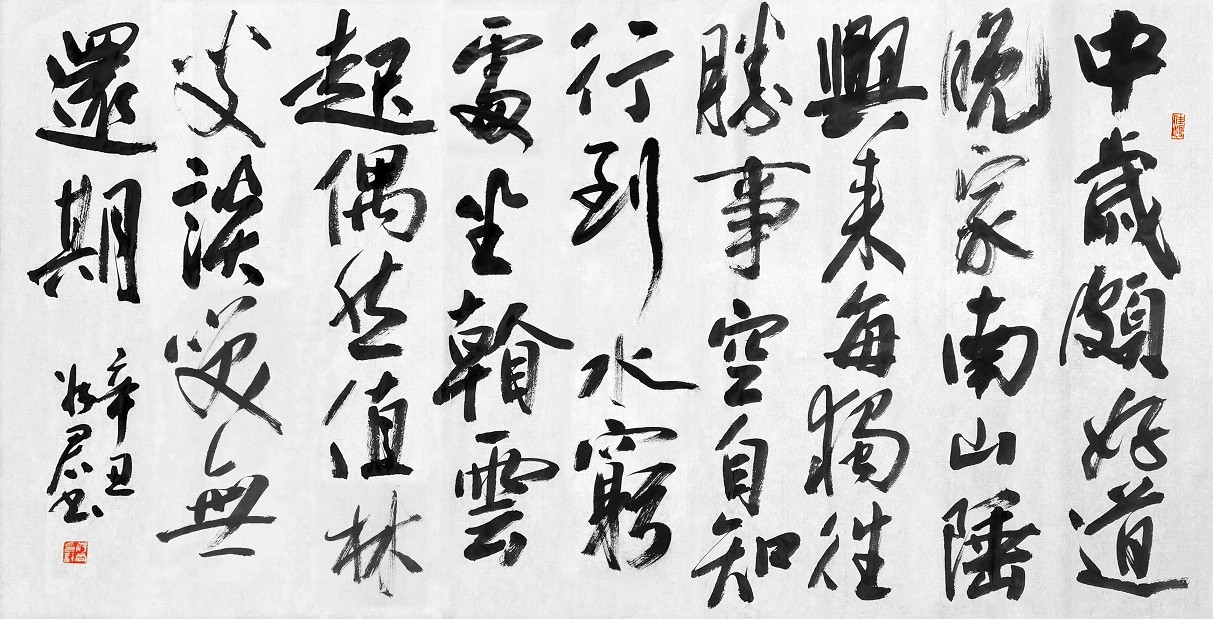 中歲頗好道
晚家南山陲
興來每獨往
勝事空自知
行到水窮
處坐看雲
起偶然值林
叟談笑無
還期
辛丑